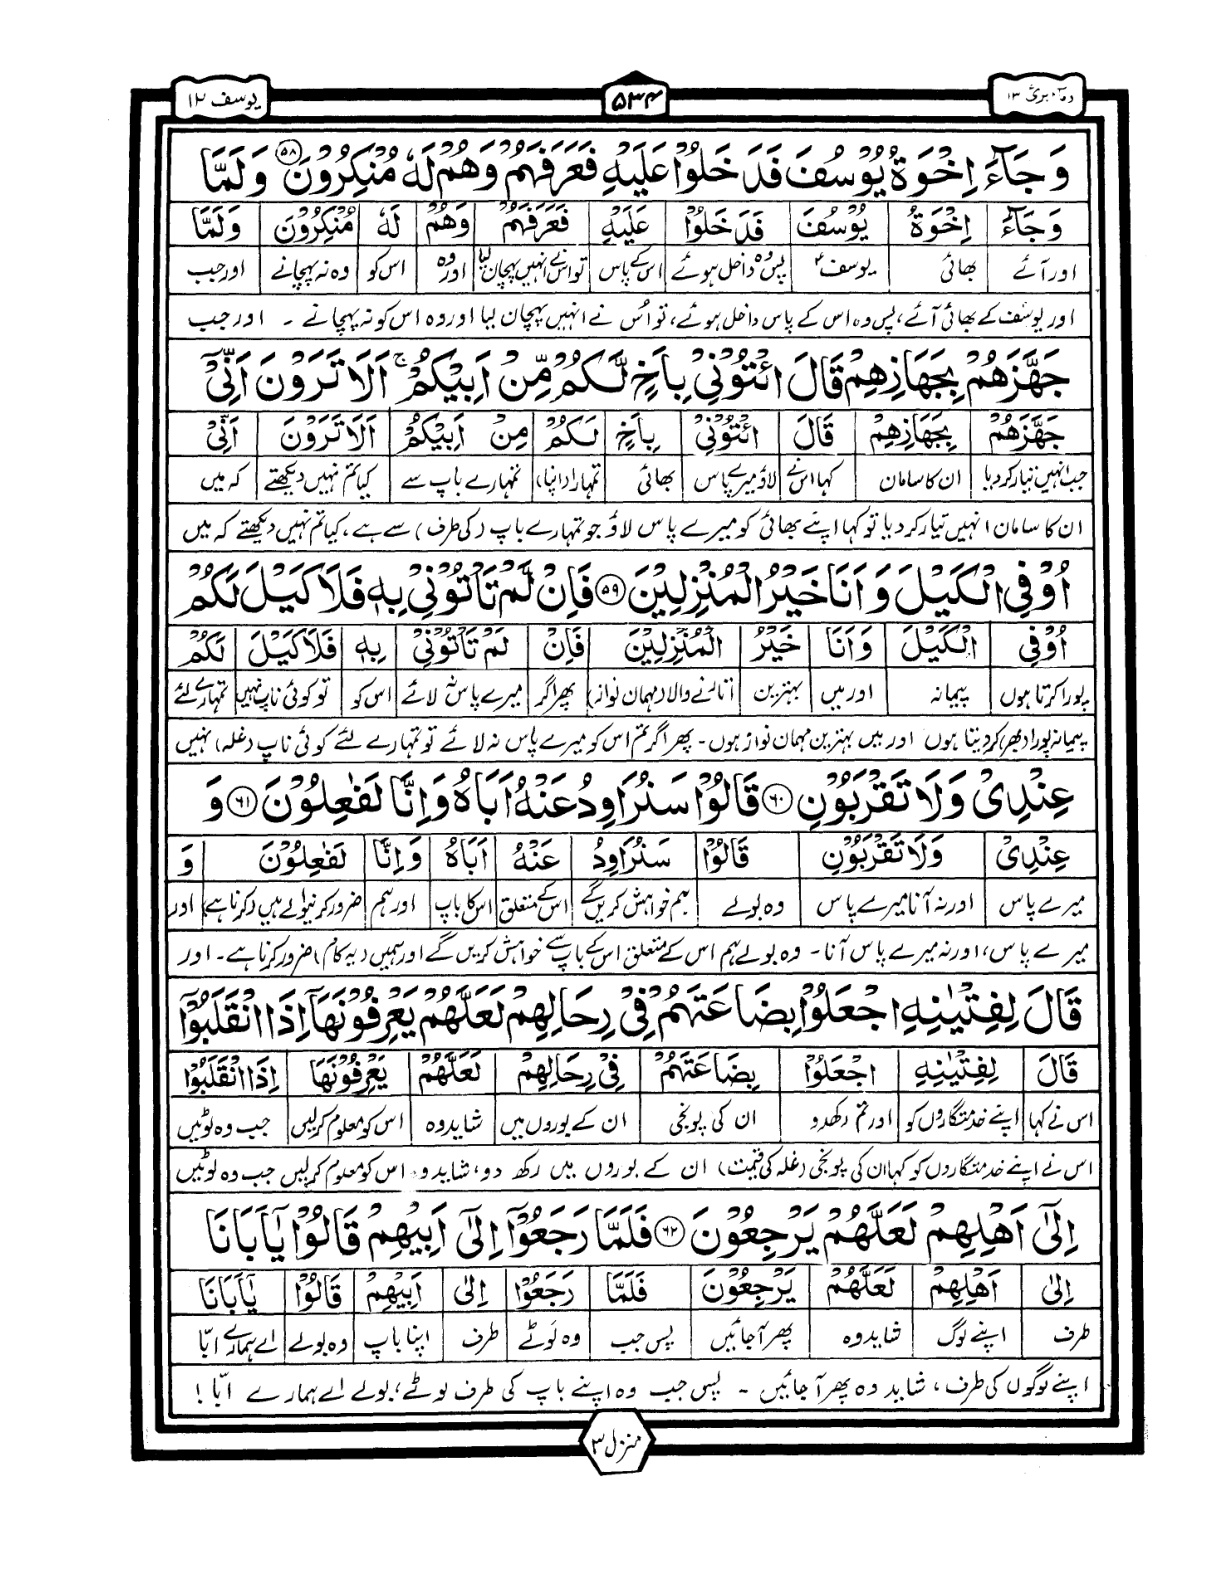 یوسف ۱۲
۵۳۴
وما ابرئ ۱۳
وَ جَآءَ اِخْوَةُ يُوْسُفَ فَدَخَلُوْا عَلَيْهِ فَعَرَفَهُمْ وَهُمْ لَهٗ مُنْكِرُوْنَ ﴿۵۸﴾ وَ لَمَّا
وَ جَآءَ اِخْوَةُ يُوْسُفَ فَدَخَلُوْا عَلَيْهِ فَعَرَفَهُمْ وَهُمْ لَهٗ مُنْكِرُوْنَ وَ لَمَّا
اور آئے بھائی یوسفؑ پس وہ داخل ہوئے اس کے پاس تو اس نے انہیں پہچان لیا اور وہ اس کو وہ نہ پہچانے اور جب
اور یوسف کے بھائی آئے، پس وہ اس کے پاس داخل ہوئے، تو اُس نے انہیں پہچان لیا اور وہ اس کو نہ پہچانے ۔ اور جب
جَهَّزَهُمْ بِجَهَازِهِمْ قَالَ ائْتُوْنِيْ بِاَخٍ لَّكُمْ مِّنْ اَبِيْكُمْ ۚ اَلَا تَرَوْنَ اَنِّيْٓ
جَهَّزَهُمْ بِجَهَازِهِمْ قَالَ ائْتُوْنِيْ بِاَخٍ لَكُمْ مِنْ اَبِيْكُمْ اَلَا تَرَوْنَ اَنِّيْ
جب انہیں تیار کر دیا ان کا سامان کہا اس نے لاؤ میرے پاس بھائی تمہارا (اپنا) تمہارے باپ سے کیا تم نہیں دیکھتے کہ میں
ان کا سامان انہیں تیار کر دیا تو کہا اپنے بھائی کو میرے پاس لاؤ جو تمہارے باپ (کی طرف) سے ہے، کیا تم نہیں دیکھتے کہ میں
اُوْفِي الْكَيْلَ وَ اَنَا خَيْرُ الْمُنْزِلِيْنَ ﴿۵۹﴾ فَاِنْ لَّمْ تَاْتُوْنِيْ بِهٖ فَلَا كَيْلَ لَكُمْ
اُوْفِي الْكَيْلَ وَ اَنَا خَيْرُ الْمُنْزِلِيْنَ فَاِنْ لَمْ تَاْتُوْنِيْ بِهٖ فَلَا كَيْلَ لَكُمْ
پورا کرتا ہوں پیمانہ اور میں بہترین اتارنے والا (مہمان نواز) پھر اگر میرے پاس نہ لائے اس کو تو کوئی ناپ نہیں تمہارے لئے
پیمانہ پورا (بھر) کر دیتا ہوں اور میں بہترین مہمان نواز ہوں۔ پھر اگر تم اس کو میرے پاس نہ لائے تو تمہارے لئے کوئی ناپ (غلہ) نہیں
عِنْدِيْ وَ لَا تَقْرَبُوْنِ ﴿۶۰﴾ قَالُوْا سَنُرَاوِدُ عَنْهُ اَبَاهُ وَ اِنَّا لَفٰعِلُوْنَ ﴿۶۱﴾ وَ
عِنْدِيْ وَ لَا تَقْرَبُوْنِ قَالُوْا سَنُرَاوِدُ عَنْهُ اَبَاهُ وَ اِنَّا لَفٰعِلُوْنَ وَ
میرے پاس اور نہ آنا میرے پاس وہ بولے ہم خواہش کریں گے اس کے متعلق اس کا باپ اور ہم ضرور کرنیوالے ہیں (کرنا ہے) اور
میرے پاس، اور نہ میرے پاس آنا۔ وہ بولے ہم اس کے متعلق اس کے باپ سے خواہش کریں گے اور ہمیں (یہ کام) ضرور کرنا ہے۔ اور
قَالَ لِفِتْيٰنِهِ اجْعَلُوْا بِضَاعَتَهُمْ فِيْ رِحَالِهِمْ لَعَلَّهُمْ يَعْرِفُوْنَهَآ اِذَا انْقَلَبُوْٓا
قَالَ لِفِتْيٰنِهِ اجْعَلُوْا بِضَاعَتَهُمْ فِيْ رِحَالِهِمْ لَعَلَّهُمْ يَعْرِفُوْنَهَا اِذَا انْقَلَبُوْا
اس نے کہا اپنے خدمتگاروں کو اور تم رکھدو ان کی پونجی ان کے بوروں میں شاید وہ اس کو معلوم کرلیں جب وہ لوٹیں
اس نے اپنے خدمتگاروں کو کہا ان کی پونجی (غلہ کی قیمت) ان کے بوروں میں رکھ دو، شاید وہ اس کو معلوم کرلیں جب وہ لوٹیں
اِلٰٓى اَهْلِهِمْ لَعَلَّهُمْ يَرْجِعُوْنَ ﴿۶۲﴾ فَلَمَّا رَجَعُوْٓا اِلٰٓى اَبِيْهِمْ قَالُوْا يٰٓاَبَانَا
اِلٰٓى اَهْلِهِمْ لَعَلَّهُمْ يَرْجِعُوْنَ فَلَمَّا رَجَعُوْا اِلٰٓى اَبِيْهِمْ قَالُوْا يٰٓاَبَانَا
طرف اپنے لوگ شاید وہ پھر آجائیں پس جب وہ لوٹے طرف اپنا باپ وہ بولے اے ہمارے ابّا
اپنے لوگوں کی طرف، شاید وہ پھر آجائیں ۔ پس جب وہ اپنے باپ کی طرف لوٹے، بولے اے ہمارے ابّا !
منزل ۳